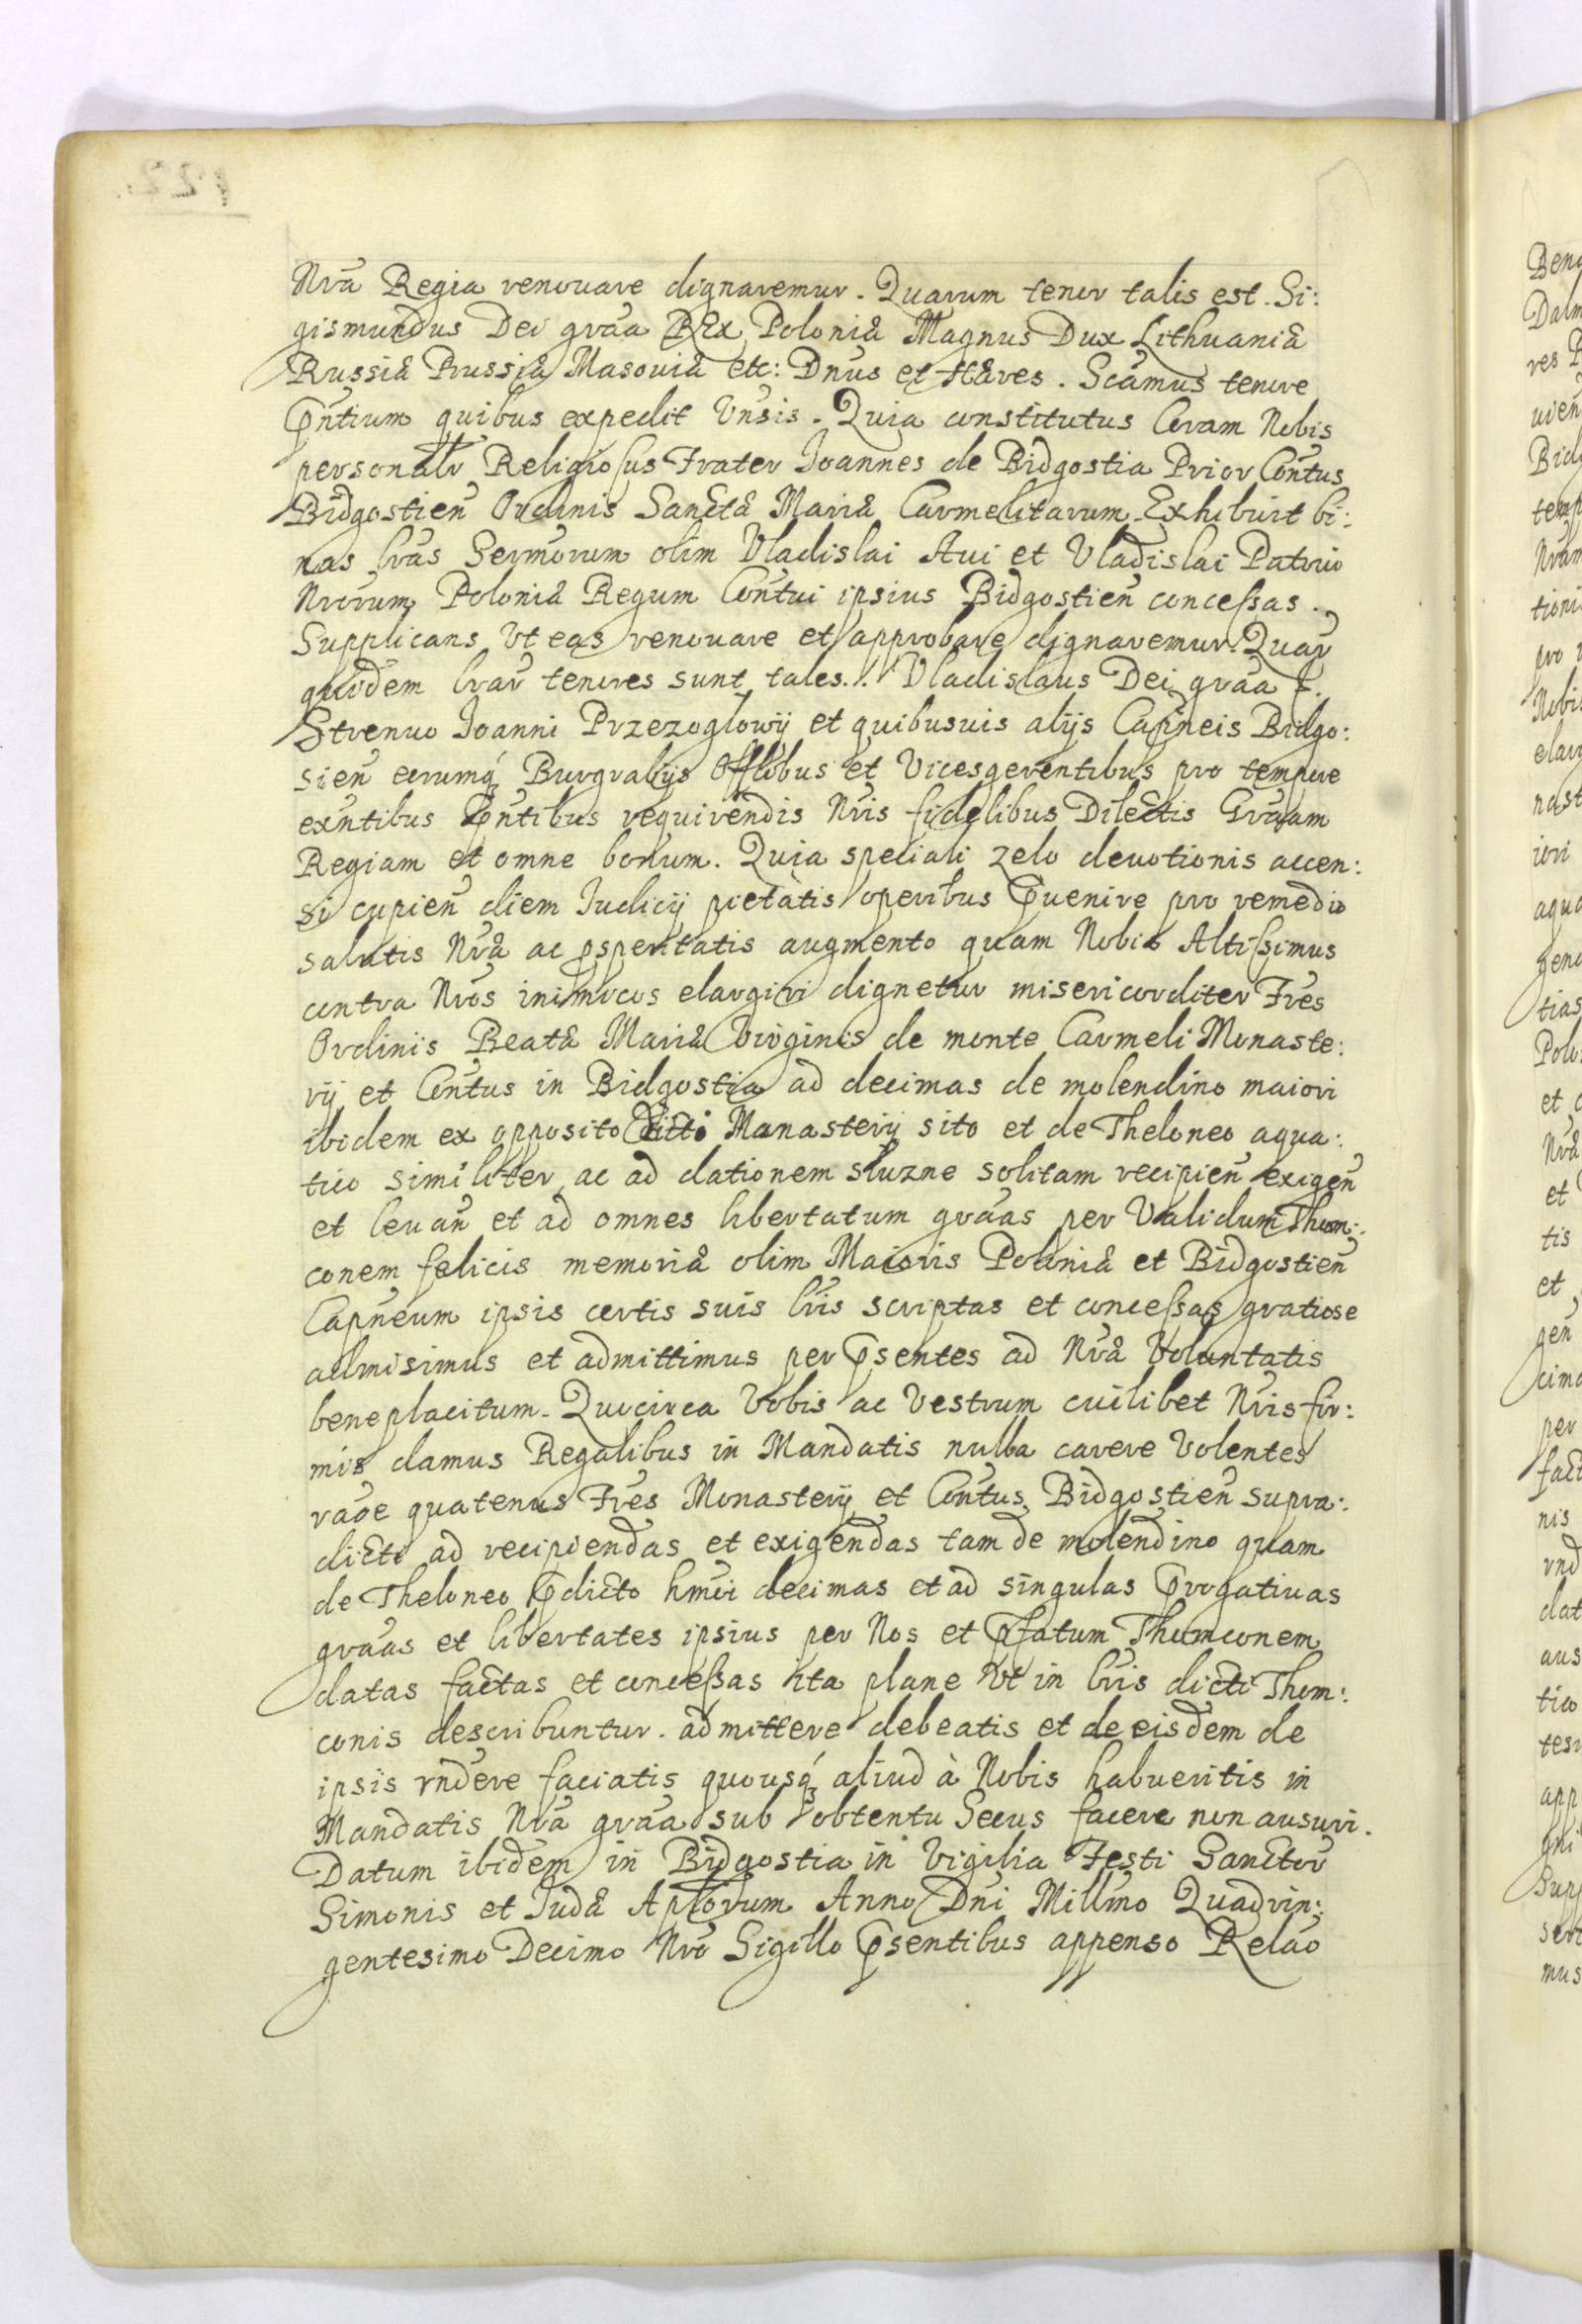 Nrã Regia renouare dignaremur. Quarum tenor talis est. Si:
gismundus Dei graã REx Poloniæ Magnus Dux Lithuaniæ
Russiæ Prussiæ Masouiæ etc: Dnus et Hæres. Scamus tenore
Pñtium quibus expedit Vnsis. Quia constitutus Coram Nobis
personalr Religiosus Frater Joannes de Bidgostia Prior Contus
Bidgostien Ordinis Sanctæ Mariæ Carmelitarum Exhibuit bi:
nas lras Sermorum olim Vladislai Aui et Vladislai Patrui
Nrorum Poloniæ Regum Contui ipsius Bidgostien concessas.
Supplicans Vt eas renouare et approbare dignaremur. Quar
quidem lrar tenores sunt tales. Vladislaus Dei graa
Strenuo Joanni Przezoglowij et quibusuis alijs Capneis Bidgo:
sien eorumq́ Burgrabijs Offlibus et Vicesgerentibus pro tempore
exñtibus Pñtibus requirendis Nris fidelibus Dilectis Graam
Regiam et omne bonum. Quia speciali zelo deuotionis accen:
si cupien diem Iudicij pietatis operibus Puenire pro remedio
salutis Nræ ac psperitatis augmento quam Nobis Altissimus
contra Nros inimicos elargiri dignetur misericorditer Fres
Ordinis Beatæ Mariæ Virginis de monte Carmeli Monaste:
rij et Contus in Bidgostia ad decimas de molendino maiori
ibidem ex opposito Dicti Manasterij sito et de Theloneo aqua:
tico similiter ac ad dationem sluzne solitam recipien exigen
et leuan et ad omnes libertatum graas per Validum Thom:
conem felicis memoriæ olim Maioris Poloniæ et Bidgostien
Capneum ipsis certis suis lris scriptas et concessas gratiose
admisimus et admittimus per Psentes ad Nræ Voluntatis
beneplacitum. Quocirca Vobis ac Vestrum cuilibet Nris fir:
mis damus Regalibus in Mandatis nulla carere Volentes
raoe quatenus Fres Monasterij et Contus Bidgostien supra:
dicti ad recipiendas et exigendas tam de molendino quam
de Theloneo Pdicto hmoi decimas et ad singulas Progatiuas
graas et libertates ipsius per Nos et Pfatum Thomconem
datas factas et concessas ita plane Vt in lris dicti Thom:
conis describuntur. admittere debeatis et de eisdem de
ipsis rndere faciatis quousq́ aliud à Nobis habueritis in
Mandatis Nra graa sub obtentu Secus facere non ausuri.
Datum ibidem in Bidgostia in Vigilia Festi Sanctor
Simonis et Iudæ Aplorum Anno Dni Millmo Quadrin:
gentesimo Decimo Nro Sigillo Psentibus appenso Relao